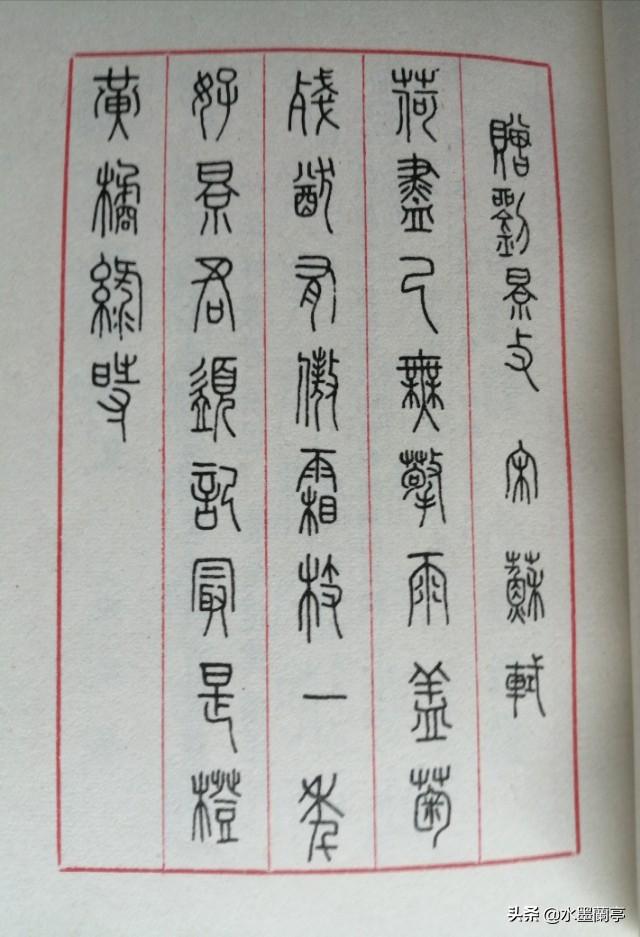 贈劉景文 宋 蘇軾
荷盡已無擎雨蓋菊
殘猶有傲霜枝一年
好景君須記最是橙
黃橘綠時
头条 @水墨蘭亭